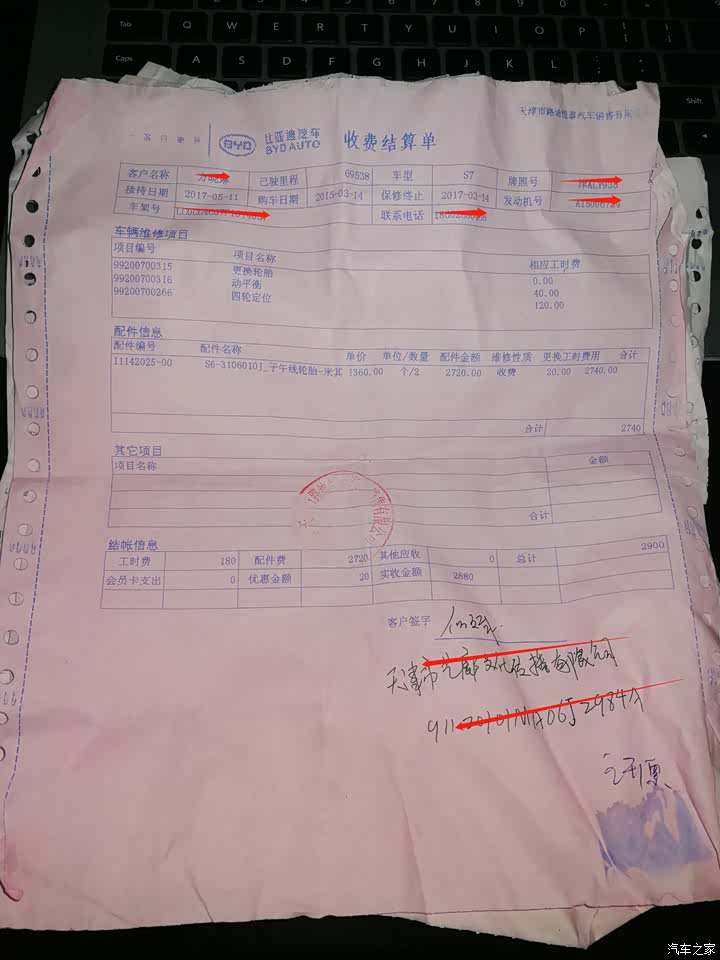 Tab Q W E R T Y U I O P
Caps A S D F G H J K L
Shift
比亚迪汽车
BYD AUTO
收费结算单
客户名称 已驶里程 69538 车型 S7 牌照号
接待日期 2017-05-11 购车日期 2015-03-14 保修终止 2017-03-14 发动机号
车架号 联系电话
车辆维修项目
项目编号 项目名称 相应工时费
99200700315 更换轮胎 0.00
99200700316 动平衡 40.00
99200700266 四轮定位 120.00
配件信息
配件编号 配件名称 单价 单位/数量 配件金额 维修性质 更换工时费用 合计
11142025-00 S6-3106010J_子午线轮胎-米其 1360.00 个/2 2720.00 收费 20.00 2740.00
合计 2740
其它项目
项目名称 金额
合计
结帐信息
工时费 180 配件费 2720 其他应收 0 总计 2900
会员卡支出 0 优惠金额 20 实收金额 2880
客户签字
汽车之家